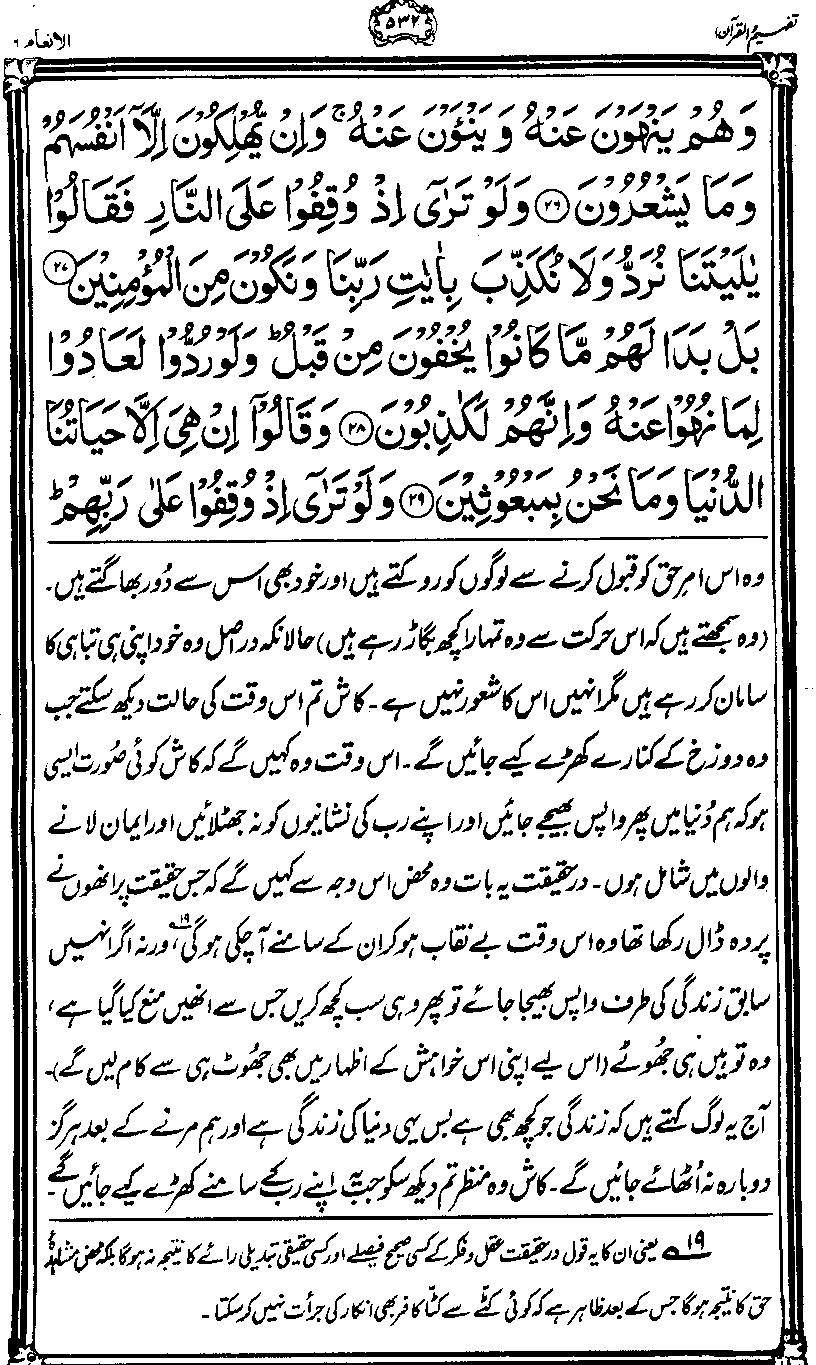 تفہیم القرآن
۵۳۲
الانعام ۶
وَهُمْ يَنْهَوْنَ عَنْهُ وَيَنْـَٔوْنَ عَنْهُ ۚ وَاِنْ يُّهْلِكُوْنَ اِلَّاۤ اَنْفُسَهُمْ
وَمَا يَشْعُرُوْنَ ﴿۲۶﴾ وَلَوْ تَرٰٓى اِذْ وُقِفُوْا عَلَى النَّارِ فَقَالُوْا
يٰلَيْتَنَا نُرَدُّ وَلَا نُكَذِّبَ بِاٰيٰتِ رَبِّنَا وَنَكُوْنَ مِنَ الْمُؤْمِنِيْنَ ﴿۲۷﴾
بَلْ بَدَا لَهُمْ مَّا كَانُوْا يُخْفُوْنَ مِنْ قَبْلُ ؕ وَلَوْ رُدُّوْا لَعَادُوْا
لِمَا نُهُوْا عَنْهُ وَاِنَّهُمْ لَكٰذِبُوْنَ ﴿۲۸﴾ وَقَالُوْۤا اِنْ هِىَ اِلَّا حَيَاتُنَا
الدُّنْيَا وَمَا نَحْنُ بِمَبْعُوْثِيْنَ ﴿۲۹﴾ وَلَوْ تَرٰٓى اِذْ وُقِفُوْا عَلٰى رَبِّهِمْ ؕ
وہ اس امرِ حق کو قبول کرنے سے لوگوں کو روکتے ہیں اور خود بھی اس سے دُور بھاگتے ہیں۔
(وہ سمجھتے ہیں کہ اس حرکت سے وہ تمہارا کچھ بگاڑ رہے ہیں) حالانکہ دراصل وہ خود اپنی ہی تباہی کا
سامان کر رہے ہیں مگر انہیں اس کا شعور نہیں ہے۔ کاش تم اس وقت کی حالت دیکھ سکتے جب
وہ دوزخ کے کنارے کھڑے کیے جائیں گے۔ اس وقت وہ کہیں گے کہ کاش کوئی صُورت ایسی
ہو کہ ہم دُنیا میں پھر واپس بھیجے جائیں اور اپنے رب کی نشانیوں کو نہ جھٹلائیں اور ایمان لانے
والوں میں شامل ہوں۔ درحقیقت یہ بات وہ محض اس وجہ سے کہیں گے کہ جس حقیقت پر انھوں نے
پردہ ڈال رکھا تھا وہ اس وقت بے نقاب ہو کر ان کے سامنے آ چکی ہوگی۱۹، ورنہ اگر انہیں
سابق زندگی کی طرف واپس بھیجا جائے تو پھر وہی سب کچھ کریں جس سے انھیں منع کیا گیا ہے،
وہ تو ہیں ہی جھوٹے (اس لیے اپنی اس خواہش کے اظہار میں بھی جھُوٹ ہی سے کام لیں گے)۔
آج یہ لوگ کہتے ہیں کہ زندگی جو کچھ بھی ہے بس یہی دنیا کی زندگی ہے اور ہم مرنے کے بعد ہرگز
دوبارہ نہ اُٹھائے جائیں گے۔ کاش وہ منظر تم دیکھ سکو جب یہ اپنے رب کے سامنے کھڑے کیے جائیں گے۔
۱۹ یعنی ان کا یہ قول درحقیقت عقل و فکر کے کسی صحیح فیصلے اور کسی حقیقی تبدیلی رائے کا نتیجہ نہ ہوگا بلکہ محض مشاہدۂ
حق کا نتیجہ ہوگا جس کے بعد ظاہر ہے کہ کوئی کٹّے سے کٹّا کافر بھی انکار کی جرأت نہیں کر سکتا۔